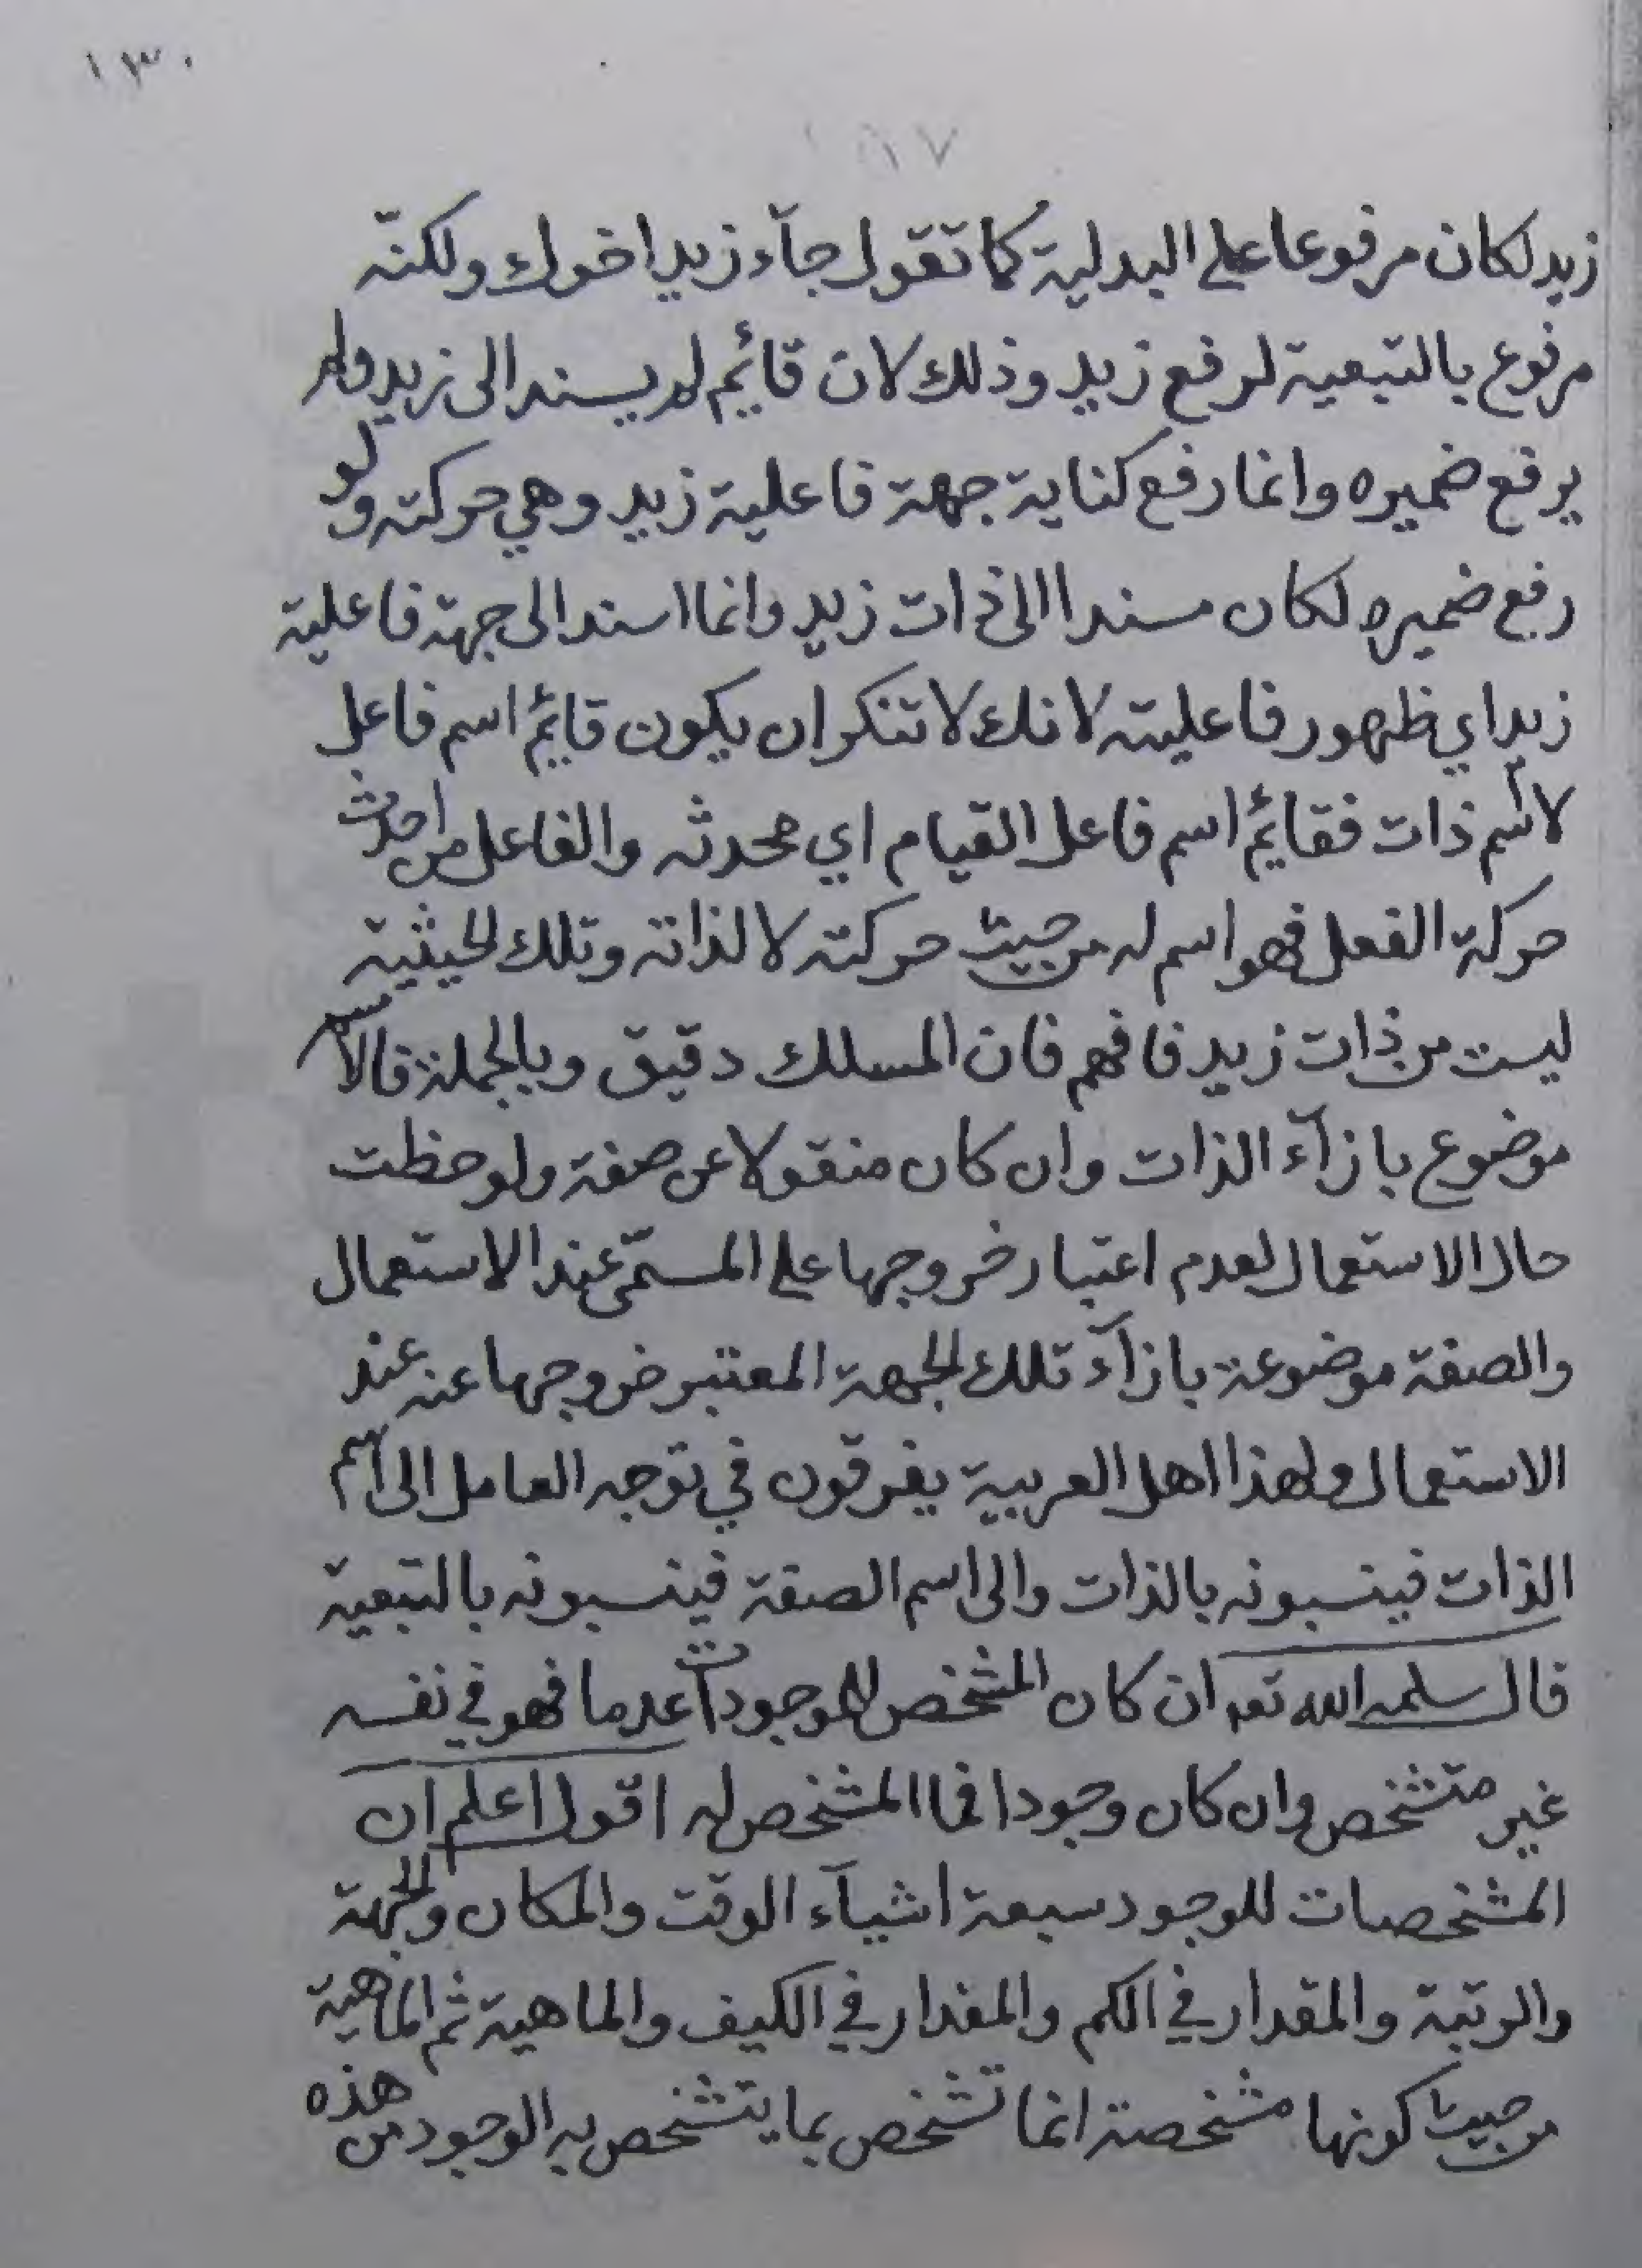 ١٣٠
١٧
زيد لكان مرفوعا على البدلية كما تقول جآء زيد اخوك ولكنّه
مرفوع بالتبعية لرفع زيد وذلك لان قائيم لم يسند الى زيد ولم
يرفع ضميره وانما رفع كناية جهة فاعلية زيد وهي حركته ولو
رفع ضميره لكان مسندا الى ذات زيد وانما اسند الى جهة فاعلية
زيد اي ظهور فاعليته لانك لا تنكر ان يكون قائيم اسم فاعل
لا اسم ذات فقائيم اسم فاعل القيام اي محدثه والفاعل من احدث
حركة الفعل فهو اسم له من حيث حركته لا لذاته وتلك الحيثية
ليست من ذات زيد فافهم فان المسلك دقيق وبالجملة فالاسم
موضوع بازآء الذات وان كان منقولا عن صفة ولوحظت
حال الاستعمال لعدم اعتبار خروجها على المسمّى عند الاستعمال
والصفة موضوعة بازآء تلك الجهة المعتبر خروجها عنه عند
الاستعمال ولهذا اهل العربية يفرقون في توجه العامل الى اسم
الذات فينسبونه بالذات والى اسم الصفة فينسبونه بالتبعية
قال سلمه الله تعـ ان كان المشخص للموجودات عدما فهو في نفسه
غير متشخص وان كان وجودا فما المشخص له اقول اعلم ان
المشخصات للوجود سبعة اشيآء الوقت والمكان والجهة
والرتبة والمقدار في الكم والمقدار في الكيف والماهية ثم الماهية
من حيث كونها مشخصة انما تشخص بما يتشخص به الوجود من هذه